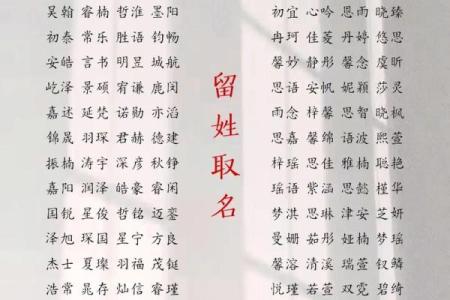 昊翰 睿楠 哲淮 墨阳
初泰 常乐 胜语 钧畅
安皓 言书 明昱 城航
屹泽 景硕 宥谦 鹿闵
嘉述 延梵 诺勋 亦滔
锦晟 羽琛 君赫 德建
振楠 涛宇 深彦 秋铮
嘉阳 润泽 皓豪 睿闲
国锐 星俊 哲铭 迈銮
泽旭 琛国 星宁 方良
杰士 夏璨 羽福 茂铤
浩常 晁存 灿信 睿瑾
留姓取名
初宜 心吟 思雨 晓臻
冉珂 佳菱 丹婷 悠思
馨妙 静彤 念念 虞昕
思语 馨妮 妮颖 莎灵
雨安 梓馨 思源 可枫
思嘉 馨锦 语波 熙萱
梓瑶 思佳 雅楠 聪艳
瑶语 紫涵 思懿 槿华
梦淇 思琳 津安 芝妍
曼姗 茹彤 娅楠 梦瑶
馨溶 清溪 瑞萱 舒
悦瑾 思 双霓 碧绮